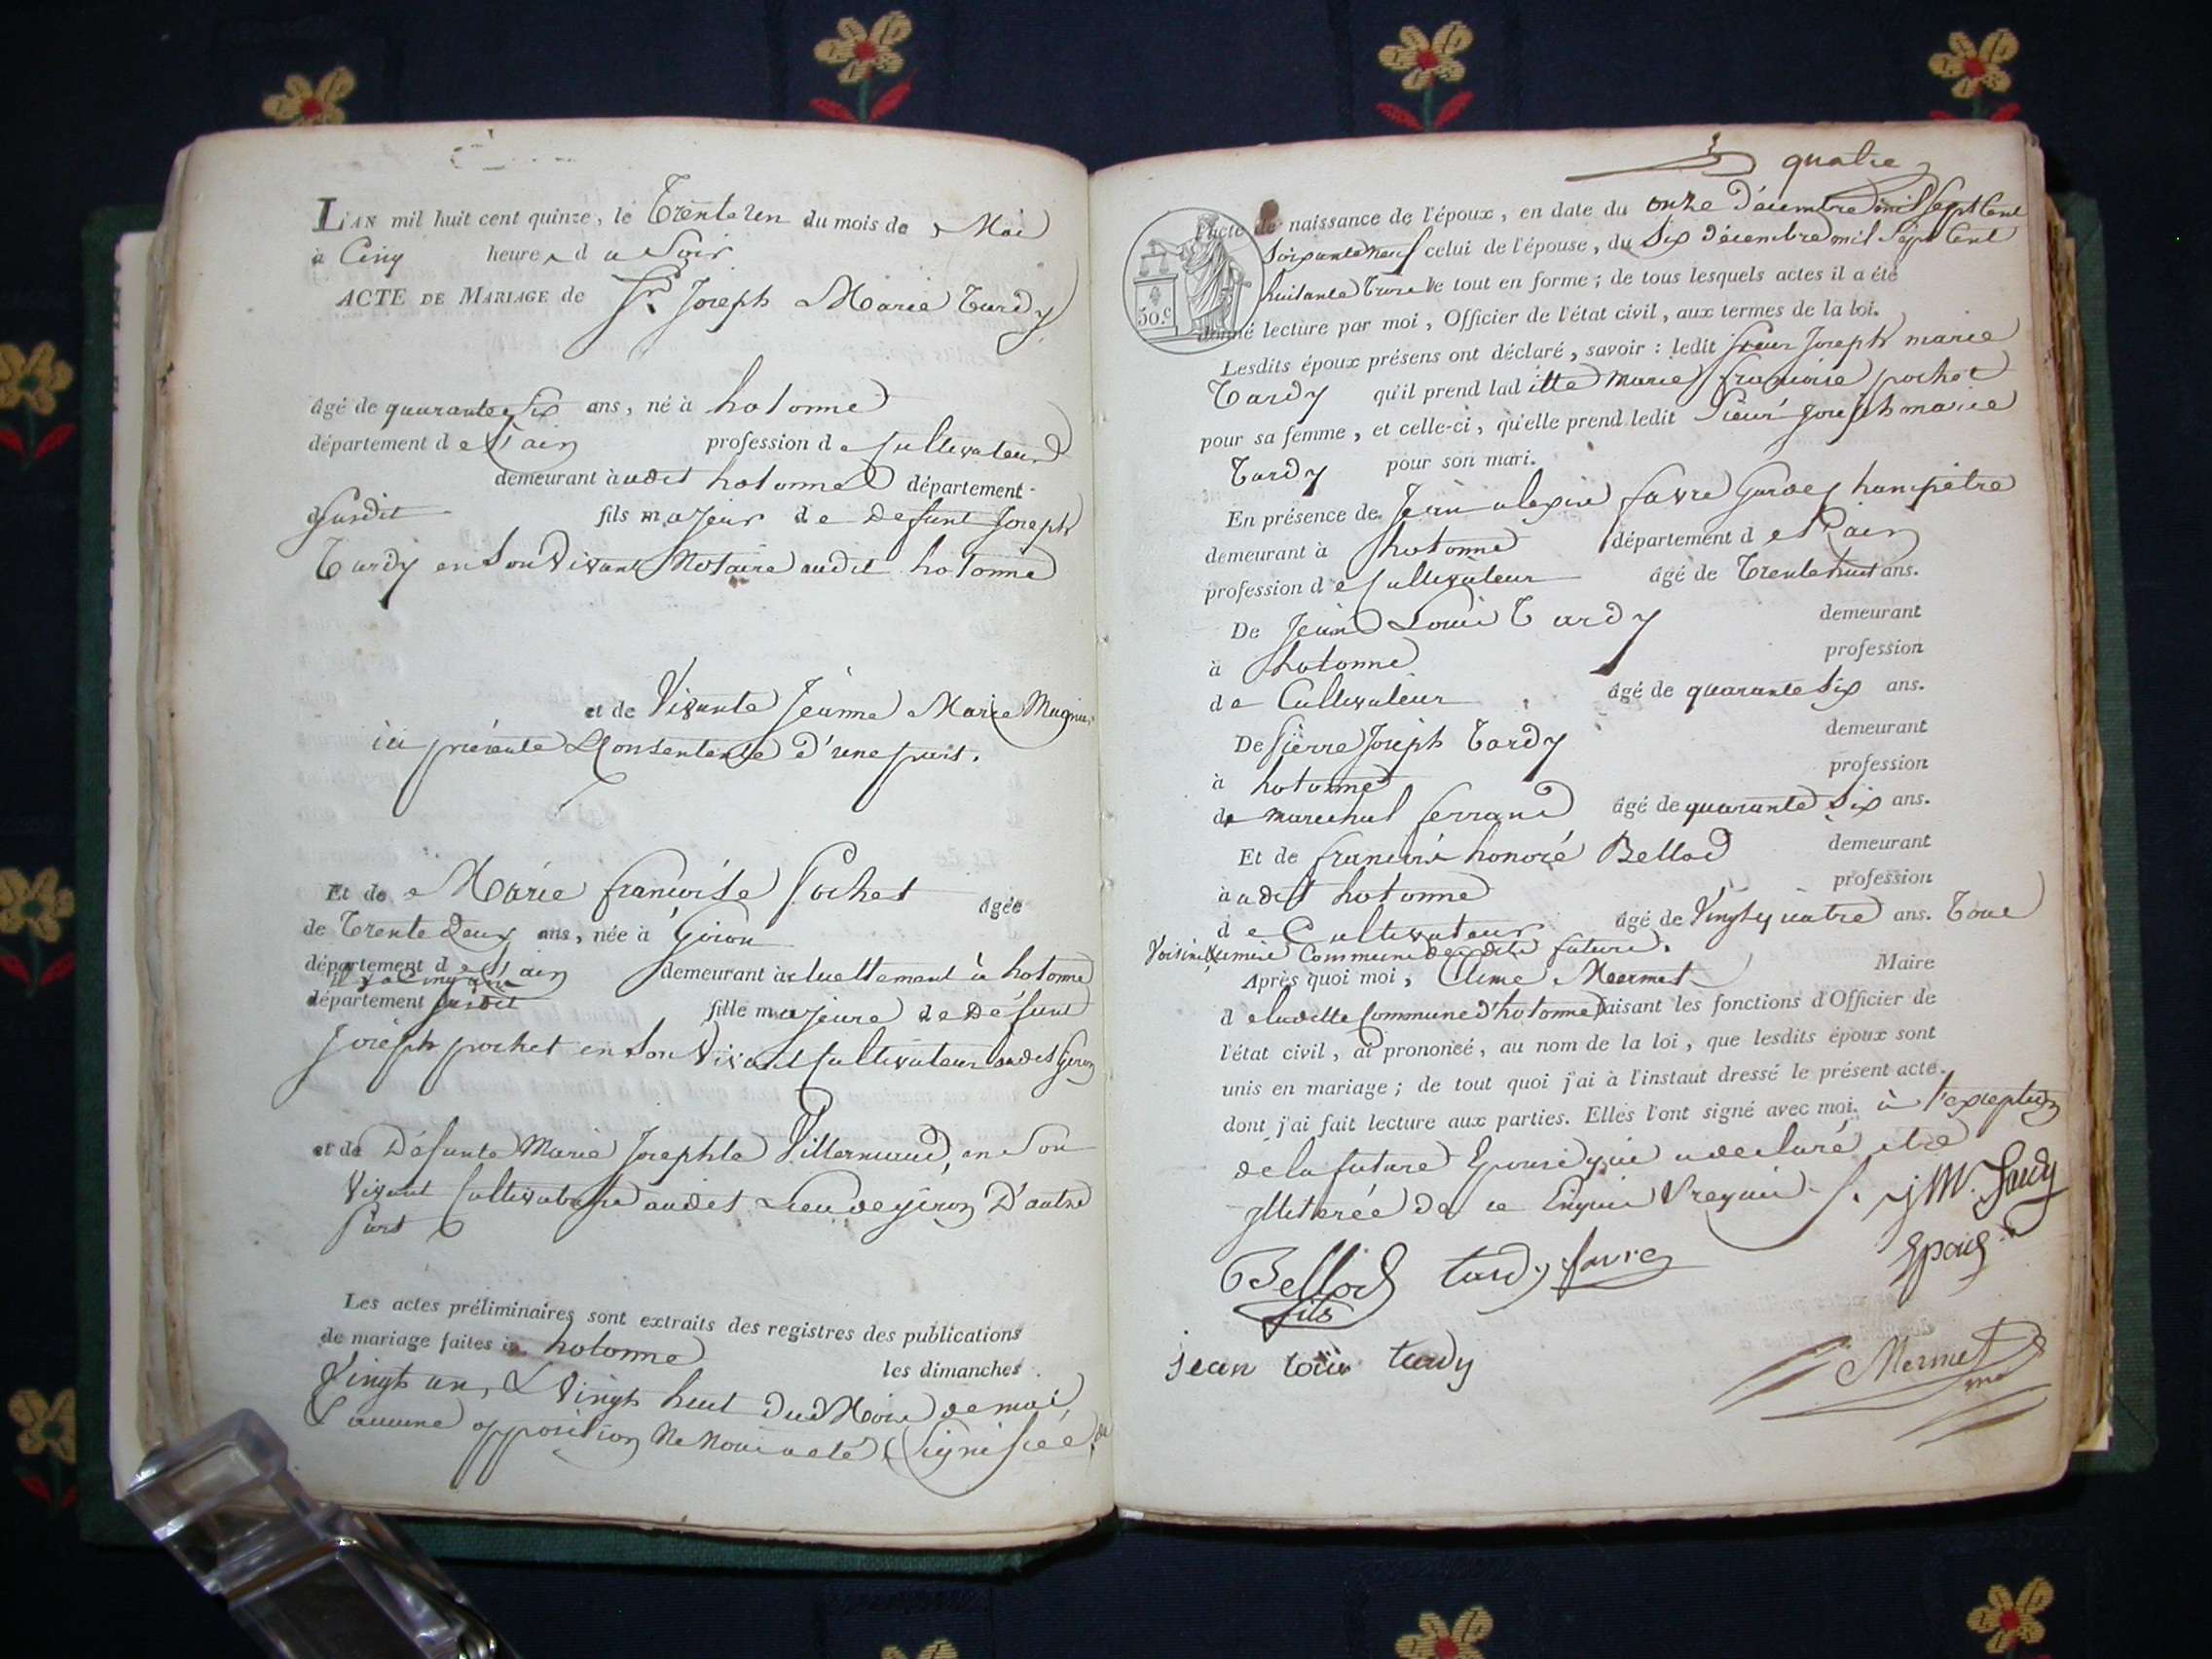 L'AN mil huit cent quinze, le Trente un du mois de Mai
à Cinq heure s du Soir
ACTE DE MARIAGE de Sr. Joseph Marie Tardy
âgé de quarante Six ans, né à hotonne
département de L'ain profession de Cultivateur
demeurant audit hotonne département
susdit fils majeur de Defunt Joseph
Tardy en Son Vivant Notaire audit hotonne
et de Vivante Jeanne Marie Magnin
ici présente & Consentente d'une part.
Et de Marie françoise Pochet âgée
de Trente deux ans, née à Giron
département de L'ain demeurant actuellement à hotonne
département susdit fille majeure de Défunt
Joseph pochet en Son Vivant Cultivateur audit Giron
et de Défunte Marie Josephte Villermaud, en Son
Vivant Cultivatrice audit Lieu de giron D'autre
Part
Les actes préliminaires sont extraits des registres des publications
de mariage faites à hotonne les dimanches
Vingt un, & Vingt huit dud Mois de mai
& aucune opposition Ne Nous a eté Signifiée,
quatre
l'acte de naissance de l'époux, en date du onze Décembre mil Sept Cent
Soixante neuf celui de l'épouse, du Six décembre mil Sept Cent
huitante Trois le tout en forme; de tous lesquels actes il a été
donné lecture par moi, Officier de l'état civil, aux termes de la loi.
Lesdits époux présens ont déclaré, savoir: ledit Sieur Joseph marie
Tardy qu'il prend ladite marie françoise pochet
pour sa femme, et celle-ci, qu'elle prend ledit Sieur Joseph marie
Tardy pour son mari.
En présence de Jean alexis favre Garde Champêtre
demeurant à hotonne département de L'ain
profession de Cultivateur âgé de Trente huit ans.
De Jean Louis Tardy demeurant
à hotonne profession
de Cultivateur âgé de quarante Six ans.
De Pierre Joseph Tardy demeurant
à hotonne profession
de marechal ferrand âgé de quarante Six ans.
Et de francois honoré Bellod demeurant
audit hotonne profession
de Cultivateur âgé de Vingt quatre ans. Tous
Voisins & amis Commun desdits futurs.
Après quoi moi, Aimé Mermet Maire
de ladite Commune d'hotonne faisant les fonctions d'Officier de
l'état civil, ai prononcé, au nom de la loi, que lesdits époux sont
unis en mariage; de tout quoi j'ai à l'instant dressé le présent acte,
dont j'ai fait lecture aux parties. Elles l'ont signé avec moi. à l'exception
de la future Epouse qui a declaré etre
illiterée de ce Enquis & requis
j M. Tardy
Epoux
Bellod tardy favre
fils
jean loüis tardy
Mermet
50.c